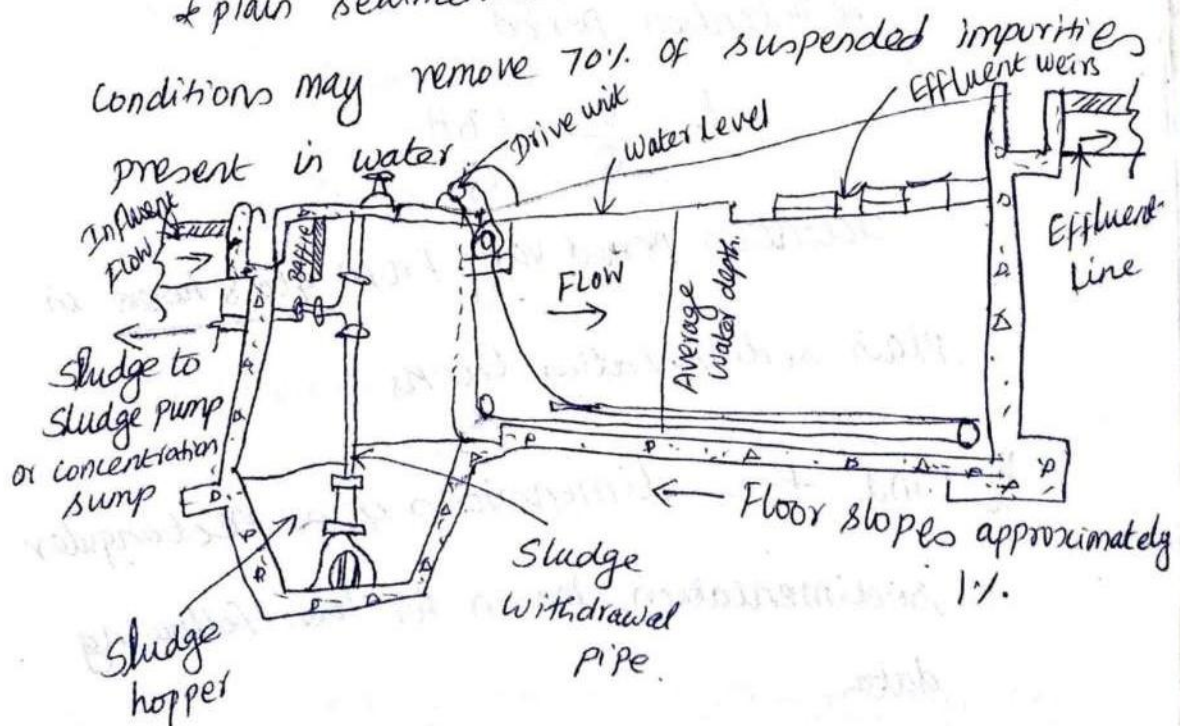 * plain
conditions may remove 70% of suspended impurities
present in water
Drive unit
Water Level
Effluent weirs
Influent
Flow
BAFFLE
FLOW
Average
Water depth.
Effluent
Line
Sludge to
Sludge pump
or concentration
sump
← Floor slopes approximately
1%.
Sludge
withdrawal
pipe.
Sludge
hopper